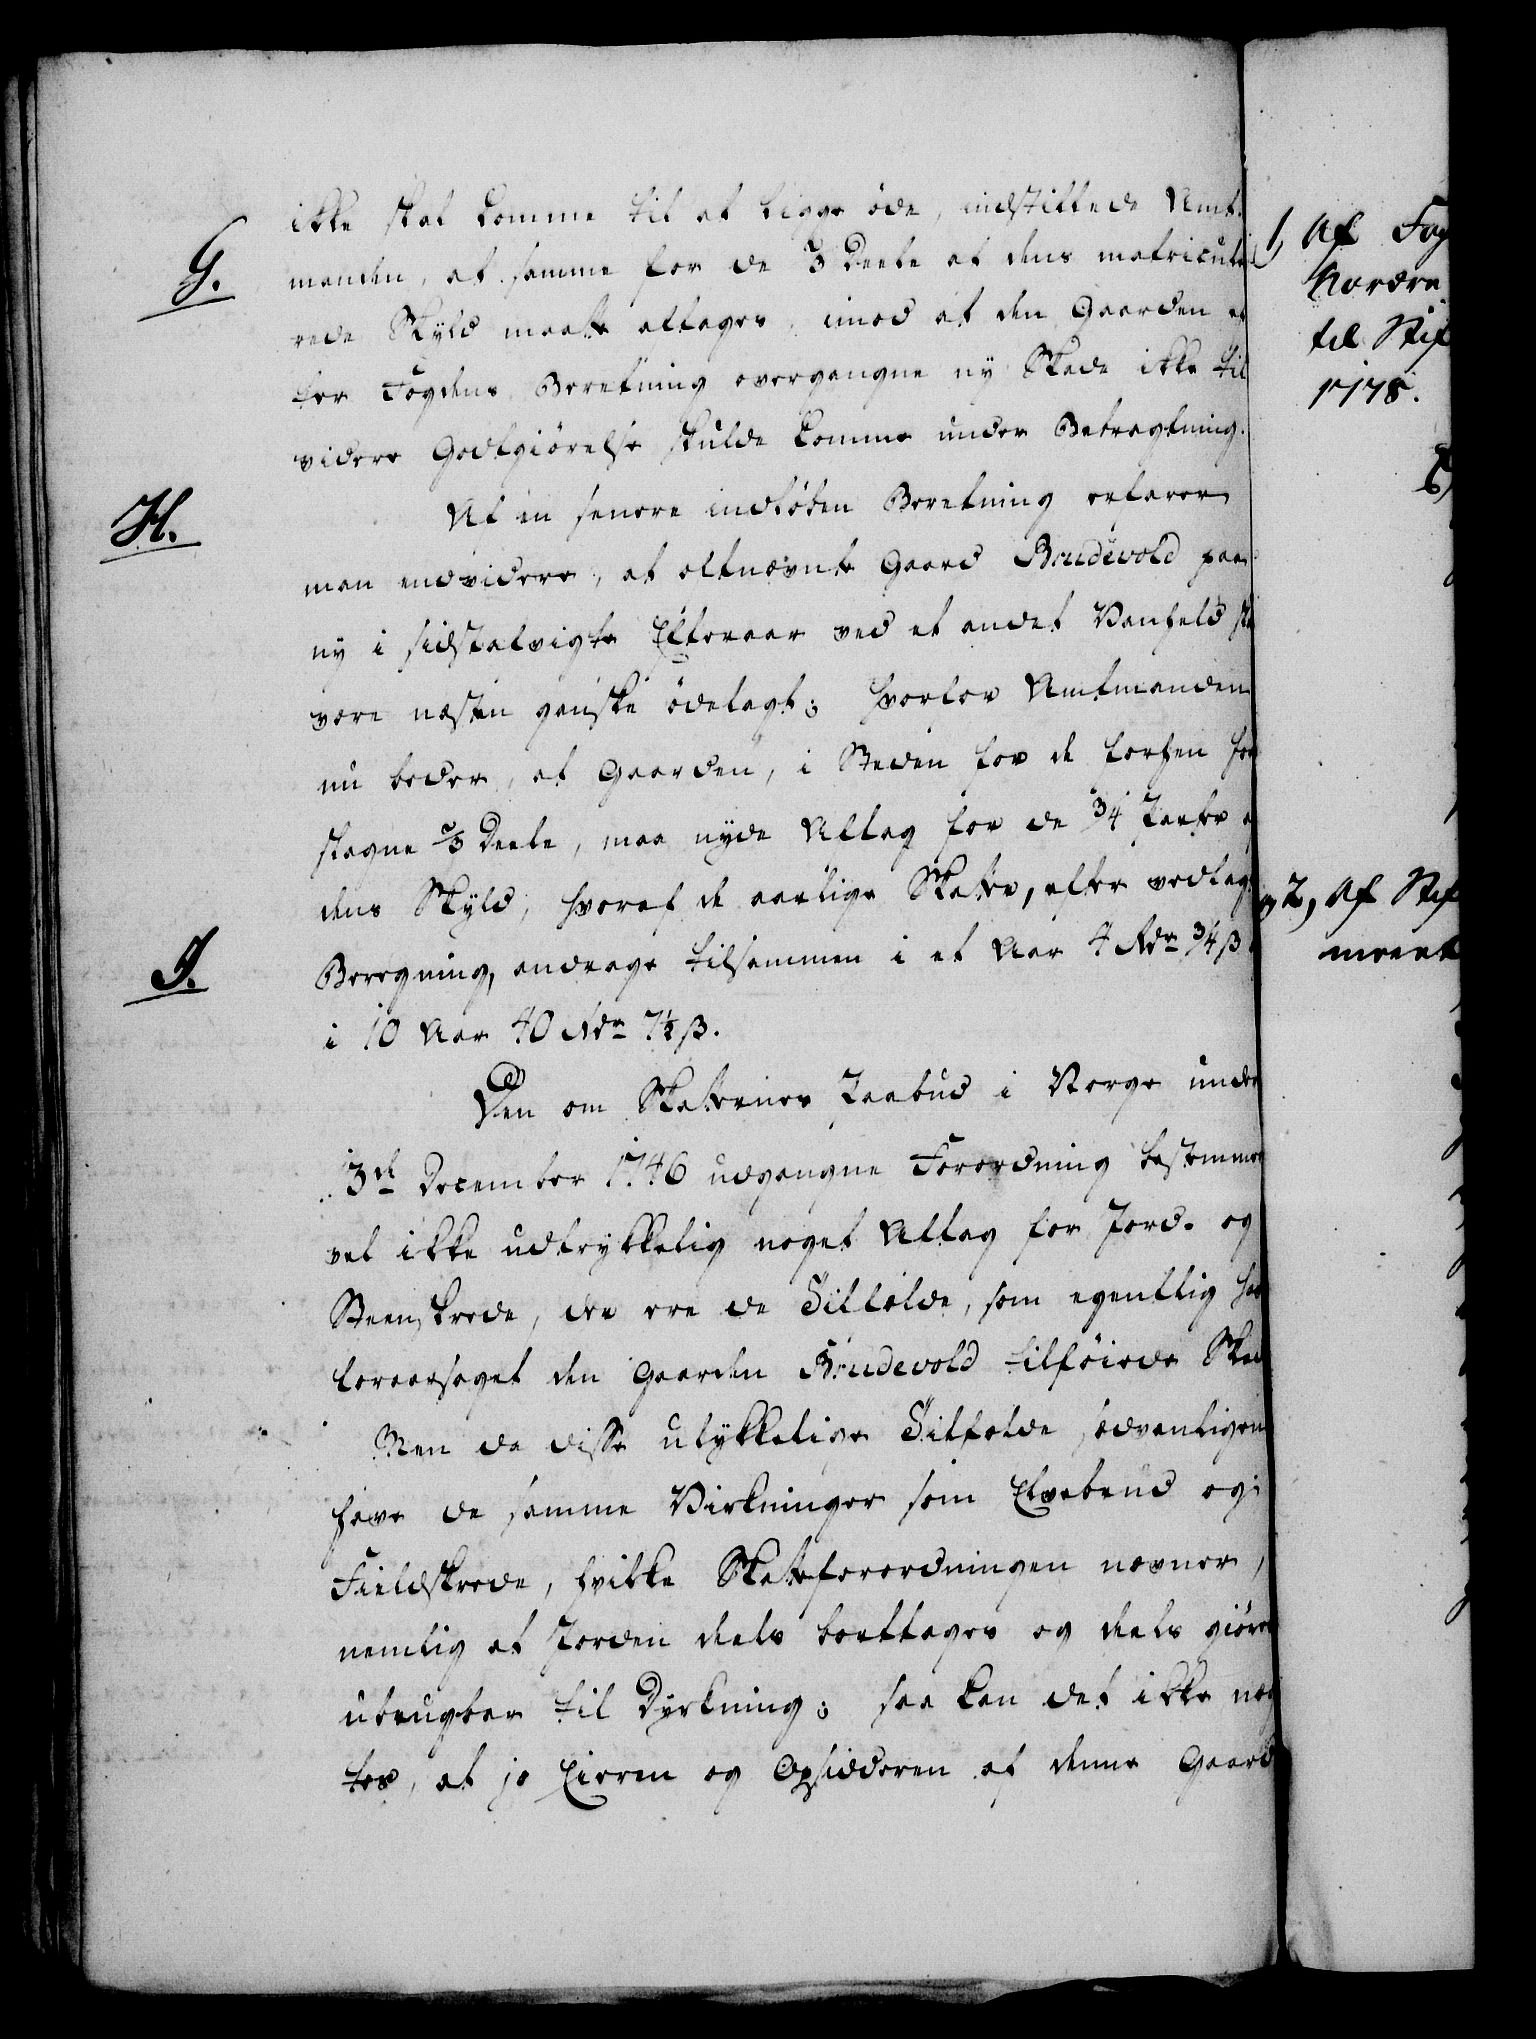 ikke skal komme til at ligge øde, indstillede Amt-
G.
manden, at samme for de ⅔ Deele af dens matricule
rede Skyld maatte aftages, imod at den Gaarden ef
ter Fogdens Beretning overgangne ny Skade ikke til
videre Godtgiørelse skulde komme under Betragtning.
H.
Af en senere indløben Beretning erfarer
man endvidere, at oftnævnte Gaard Brudevold paa
ny i sidstafvigte Efteraar ved et andet Vanfeld ska
være næsten ganske ødelagt; hvorfor Amtmanden
nu beder, at Gaarden, i Steden for de forhen fore
slagne ⅔ Deele, maa nyde Aftag for de ¾ Parter af
dens Skyld, hvoraf de aarlige Skatter, efter vedlagt
I.
Beregning, andrage tilsammen i et Aar 4 Rdr ¾ ß
i 10 Aar 40 Rdr 7½ ß.
Den om Skatternes Paabud i Norge under
3d December 1746 udgangne Forordning bestemmer
vel ikke udtrykkelig noget Aftag for Jord- og
Steenskrede, der ere de Tilfælde, som egentlig har
foraarsaget den Gaarden Brudevold tilføiede Skad
Men da disse ulykkelige Tilfælde sædvanligen
have de samme Virkninger som Elvebrud og
Fieldskrede, hvilke Skatteforordningen nævner,
nemlig at Jorden deels borttages og deels giøres
ubrugbar til Dyrkning; saa kan det ikke næg
tes, at jo Eieren og Opsidderen af denne Gaard
1, Af Fog
Nordre
til Stif
1778.
2, Af Stif